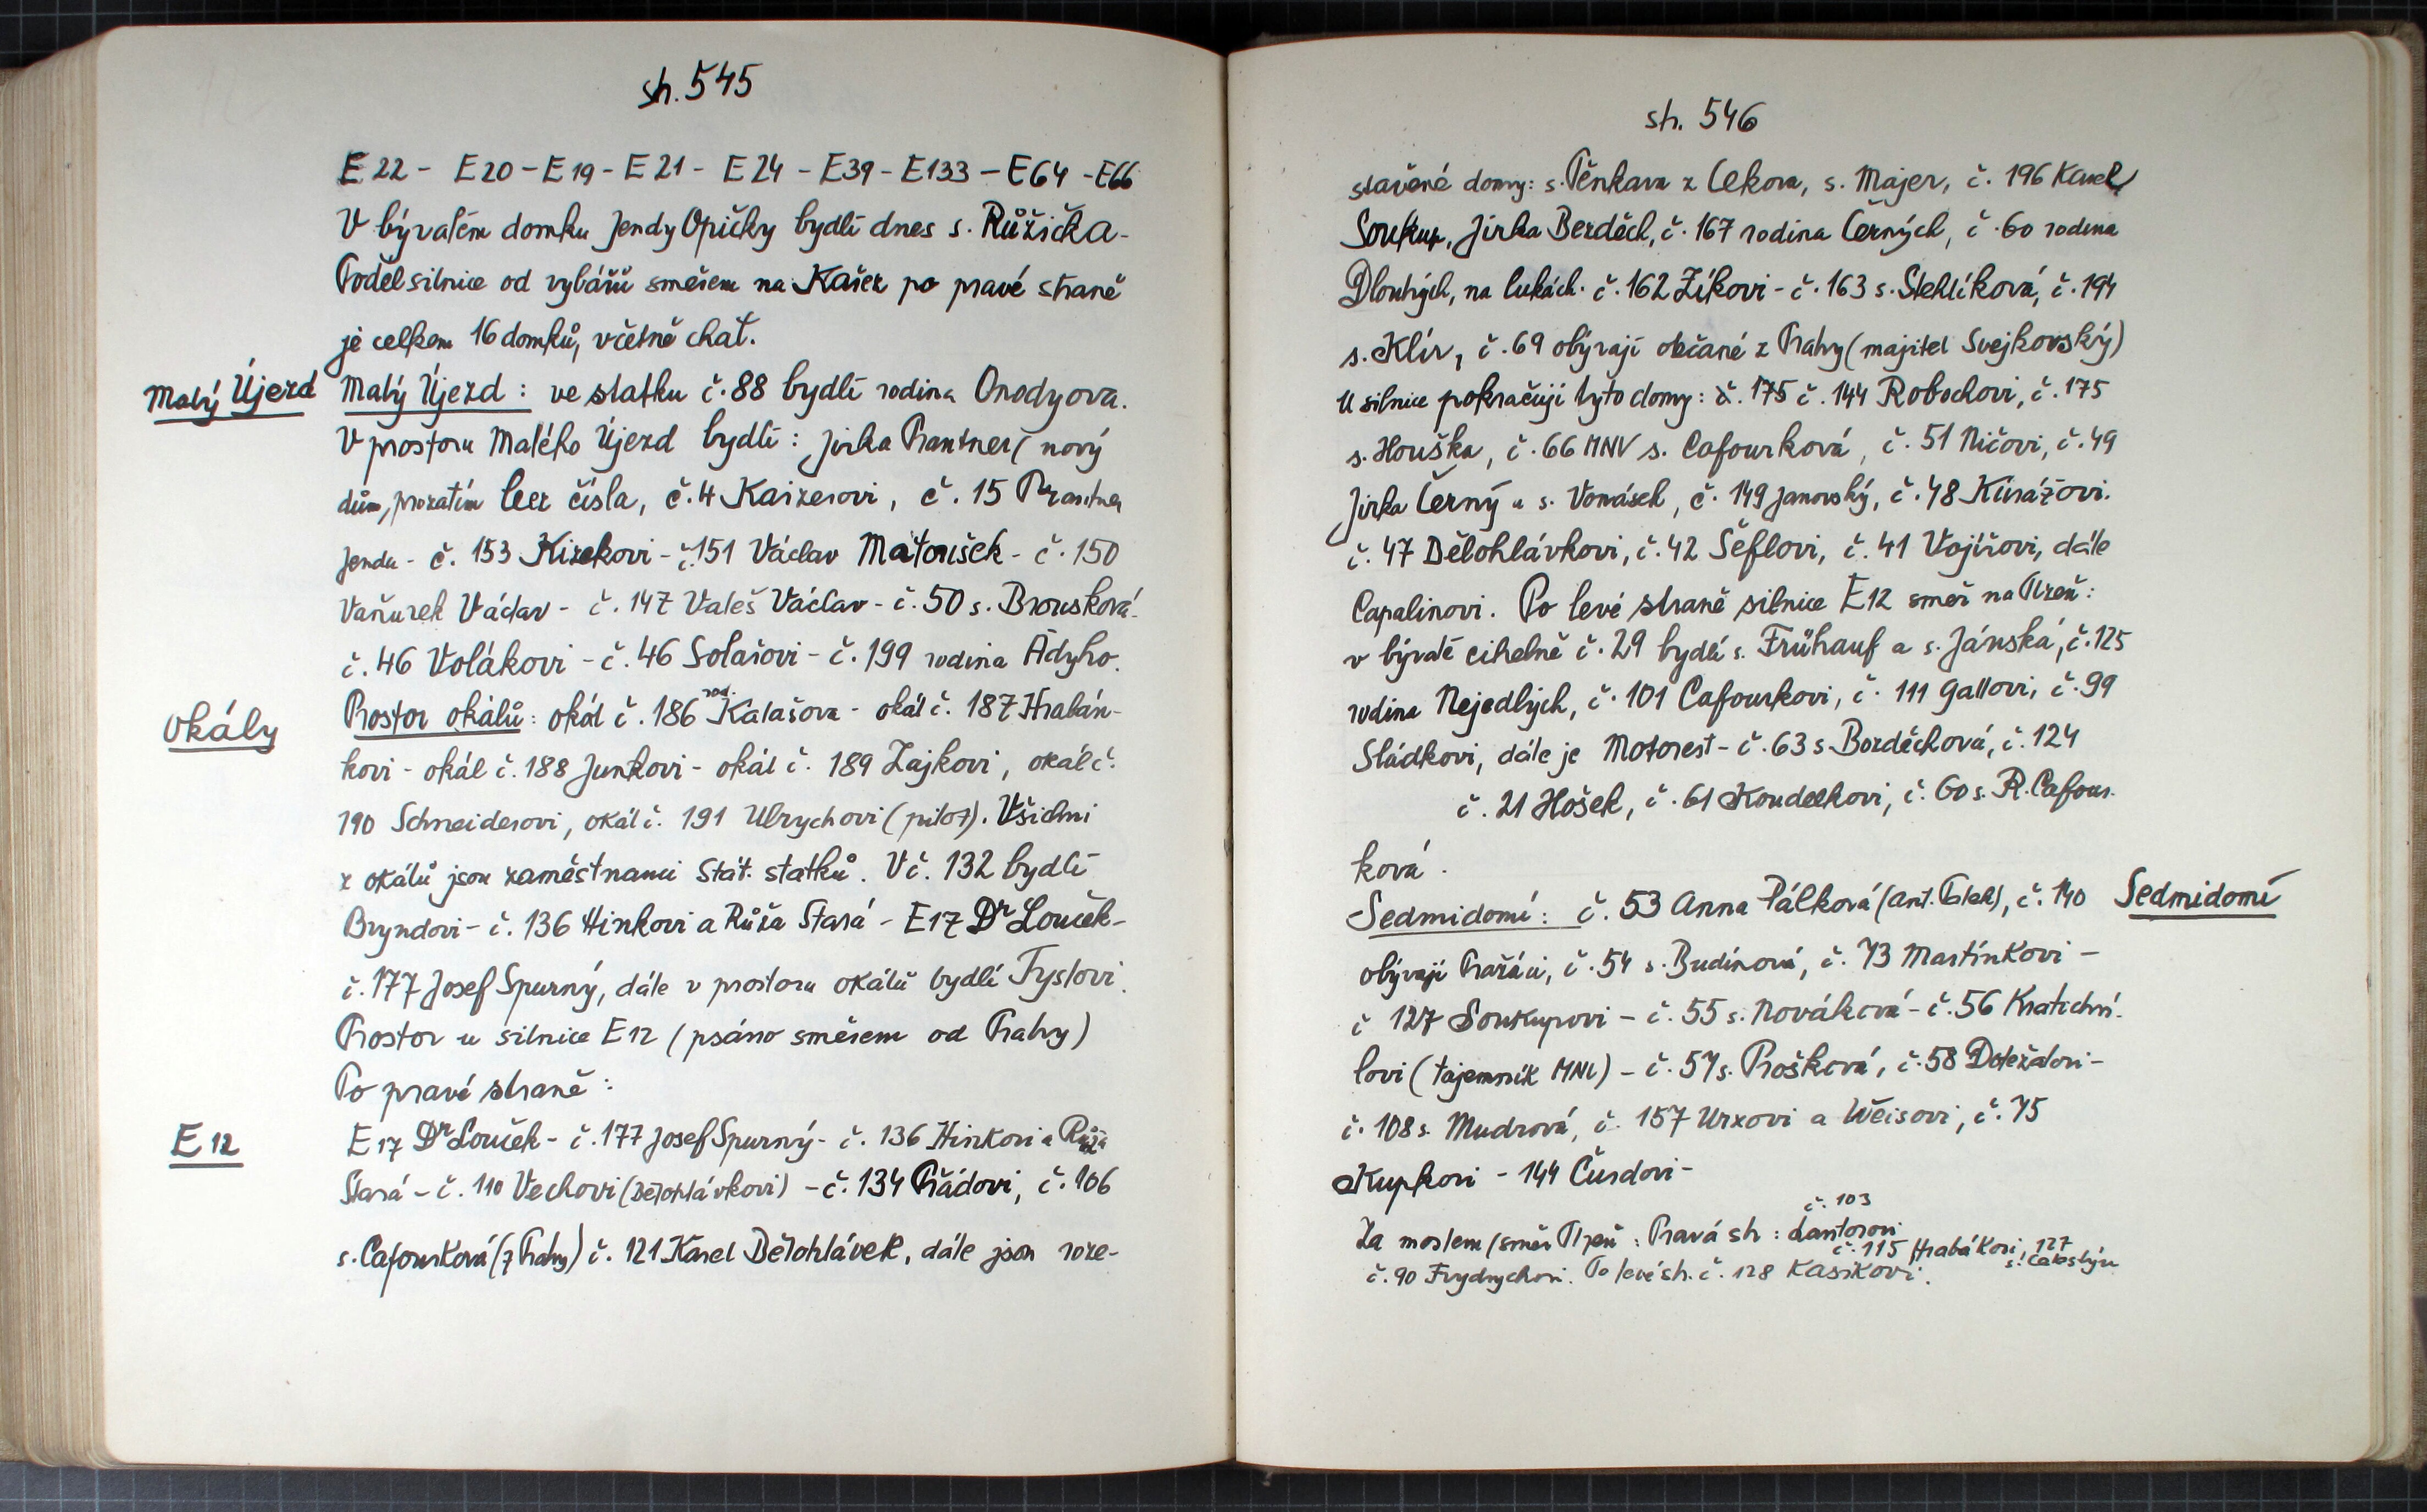 str. 545
E 22 - E 20 - E 19 - E 21 - E 24 - E 39 - E 133 - E 64 - E 66
V bývalém domku Jendy Opičky bydlí dnes s. Růžička.
Podél silnice od rybářů směrem na Kařez po pravé straně
je celkem 16 domků, včetně chat.
Malý Újezd
Malý Újezd : ve statku č. 88 bydlí rodina Onodyova.
V prostoru Malého Újezd bydlí : Jirka Prantner ( nový
dům, prozatím bez čísla, č. 4 Kaizerovi, č. 15 Prantner
Jenda - č. 153 Kizekovi - č. 151 Václav Matoušek - č. 150
Vaňurek Václav - č. 147 Valeš Václav - č. 50 s. Brousková.
č. 46 Volákovi - č. 46 Solařovi - č. 199 rodina Ádyho.
Okály
Prostor okálů : okál č. 186 rod. Kalašova - okál č. 187 Hrabán-
kovi - okál č. 188 Junkovi - okál č. 189 Zajkovi, okál č.
190 Schneiderovi, okál č. 191 Ulrychovi ( pilot ). Všichni
z okálů jsou zaměstnanci Stát. statků. V č. 132 bydlí
Bryndovi - č. 136 Hinkovi a Růža Stará - E 17 Dr Louček -
č. 177 Josef Spurný, dále v prostoru okálů bydlí Fyslovi.
Prostor u silnice E 12 ( psáno směrem od Prahy )
Po pravé straně :
E 12
E 17 Dr Louček - č. 177 Josef Spurný - č. 136 Hinkovi a Růža
Stará - č. 110 Vechovi ( Bělohlávkovi ) - č. 134 Řádovi, č. 106
s. Cafourková ( z Prahy ) č. 121 Karel Bělohlávek, dále jsou roze-
str. 546
stavěné domy : s. Pěnkava z Cekova, s. Majer, č. 196 Karel
Soukup, Jirka Berděch, č. 167 rodina Černých, č. 60 rodina
Dlouhých, na lukách. č. 162 Zíkovi - č. 163 s. Stehlíková, č. 194
s. Klír, č. 69 obývají občané z Prahy ( majitel Svejkovský )
U silnice pokračují tyto domy : č. 175 č. 144 Robochovi, č. 175
s. Houška, č. 66 MNV s. Cafourková, č. 51 Ničovi, č. 49
Jirka Černý a s. Vonásek, č. 149 Janovský, č. 48 Kinážovi.
č. 47 Bělohlávkovi, č. 42 Šeflovi, č. 41 Vojířovi, dále
Capalinovi. Po levé straně silnice E 12 směr na Plzeň :
v bývalé cihelně č. 29 bydlí s. Frühauf a s. Jánská, č. 125
rodina Nejedlých, č. 101 Cafourkovi, č. 111 Gallovi, č. 99
Sládkovi, dále je Motorest - č. 63 s. Bozděchová, č. 124
č. 21 Hošek, č. 61 Koudelkovi, č. 60 s. R. Cafour-
ková.
Sedmidomí : č. 53 Anna Pálková ( Ant. Polek ), č. 140
Sedmidomí
obývají Pražáci, č. 54 s. Budínová, č. 73 Martínkovi -
č 127 Soukupovi - č. 55 s. Nováková - č. 56 Kratochví-
lovi ( tajemník MNV ) - č. 57 s. Prošková, č. 58 Doležalovi -
č. 108 s. Mudrová, č. 157 Urxovi a Weisovi, č. 75
Kupkovi - 144 Čurdovi -
č. 103
Za mostem ( směr Plzeň : Pravá str : Lantorovi
č. 115 Hrabákovi, 127
č. 90 Frydrychovi. Po levé str. č. 128 Kasíkovi.